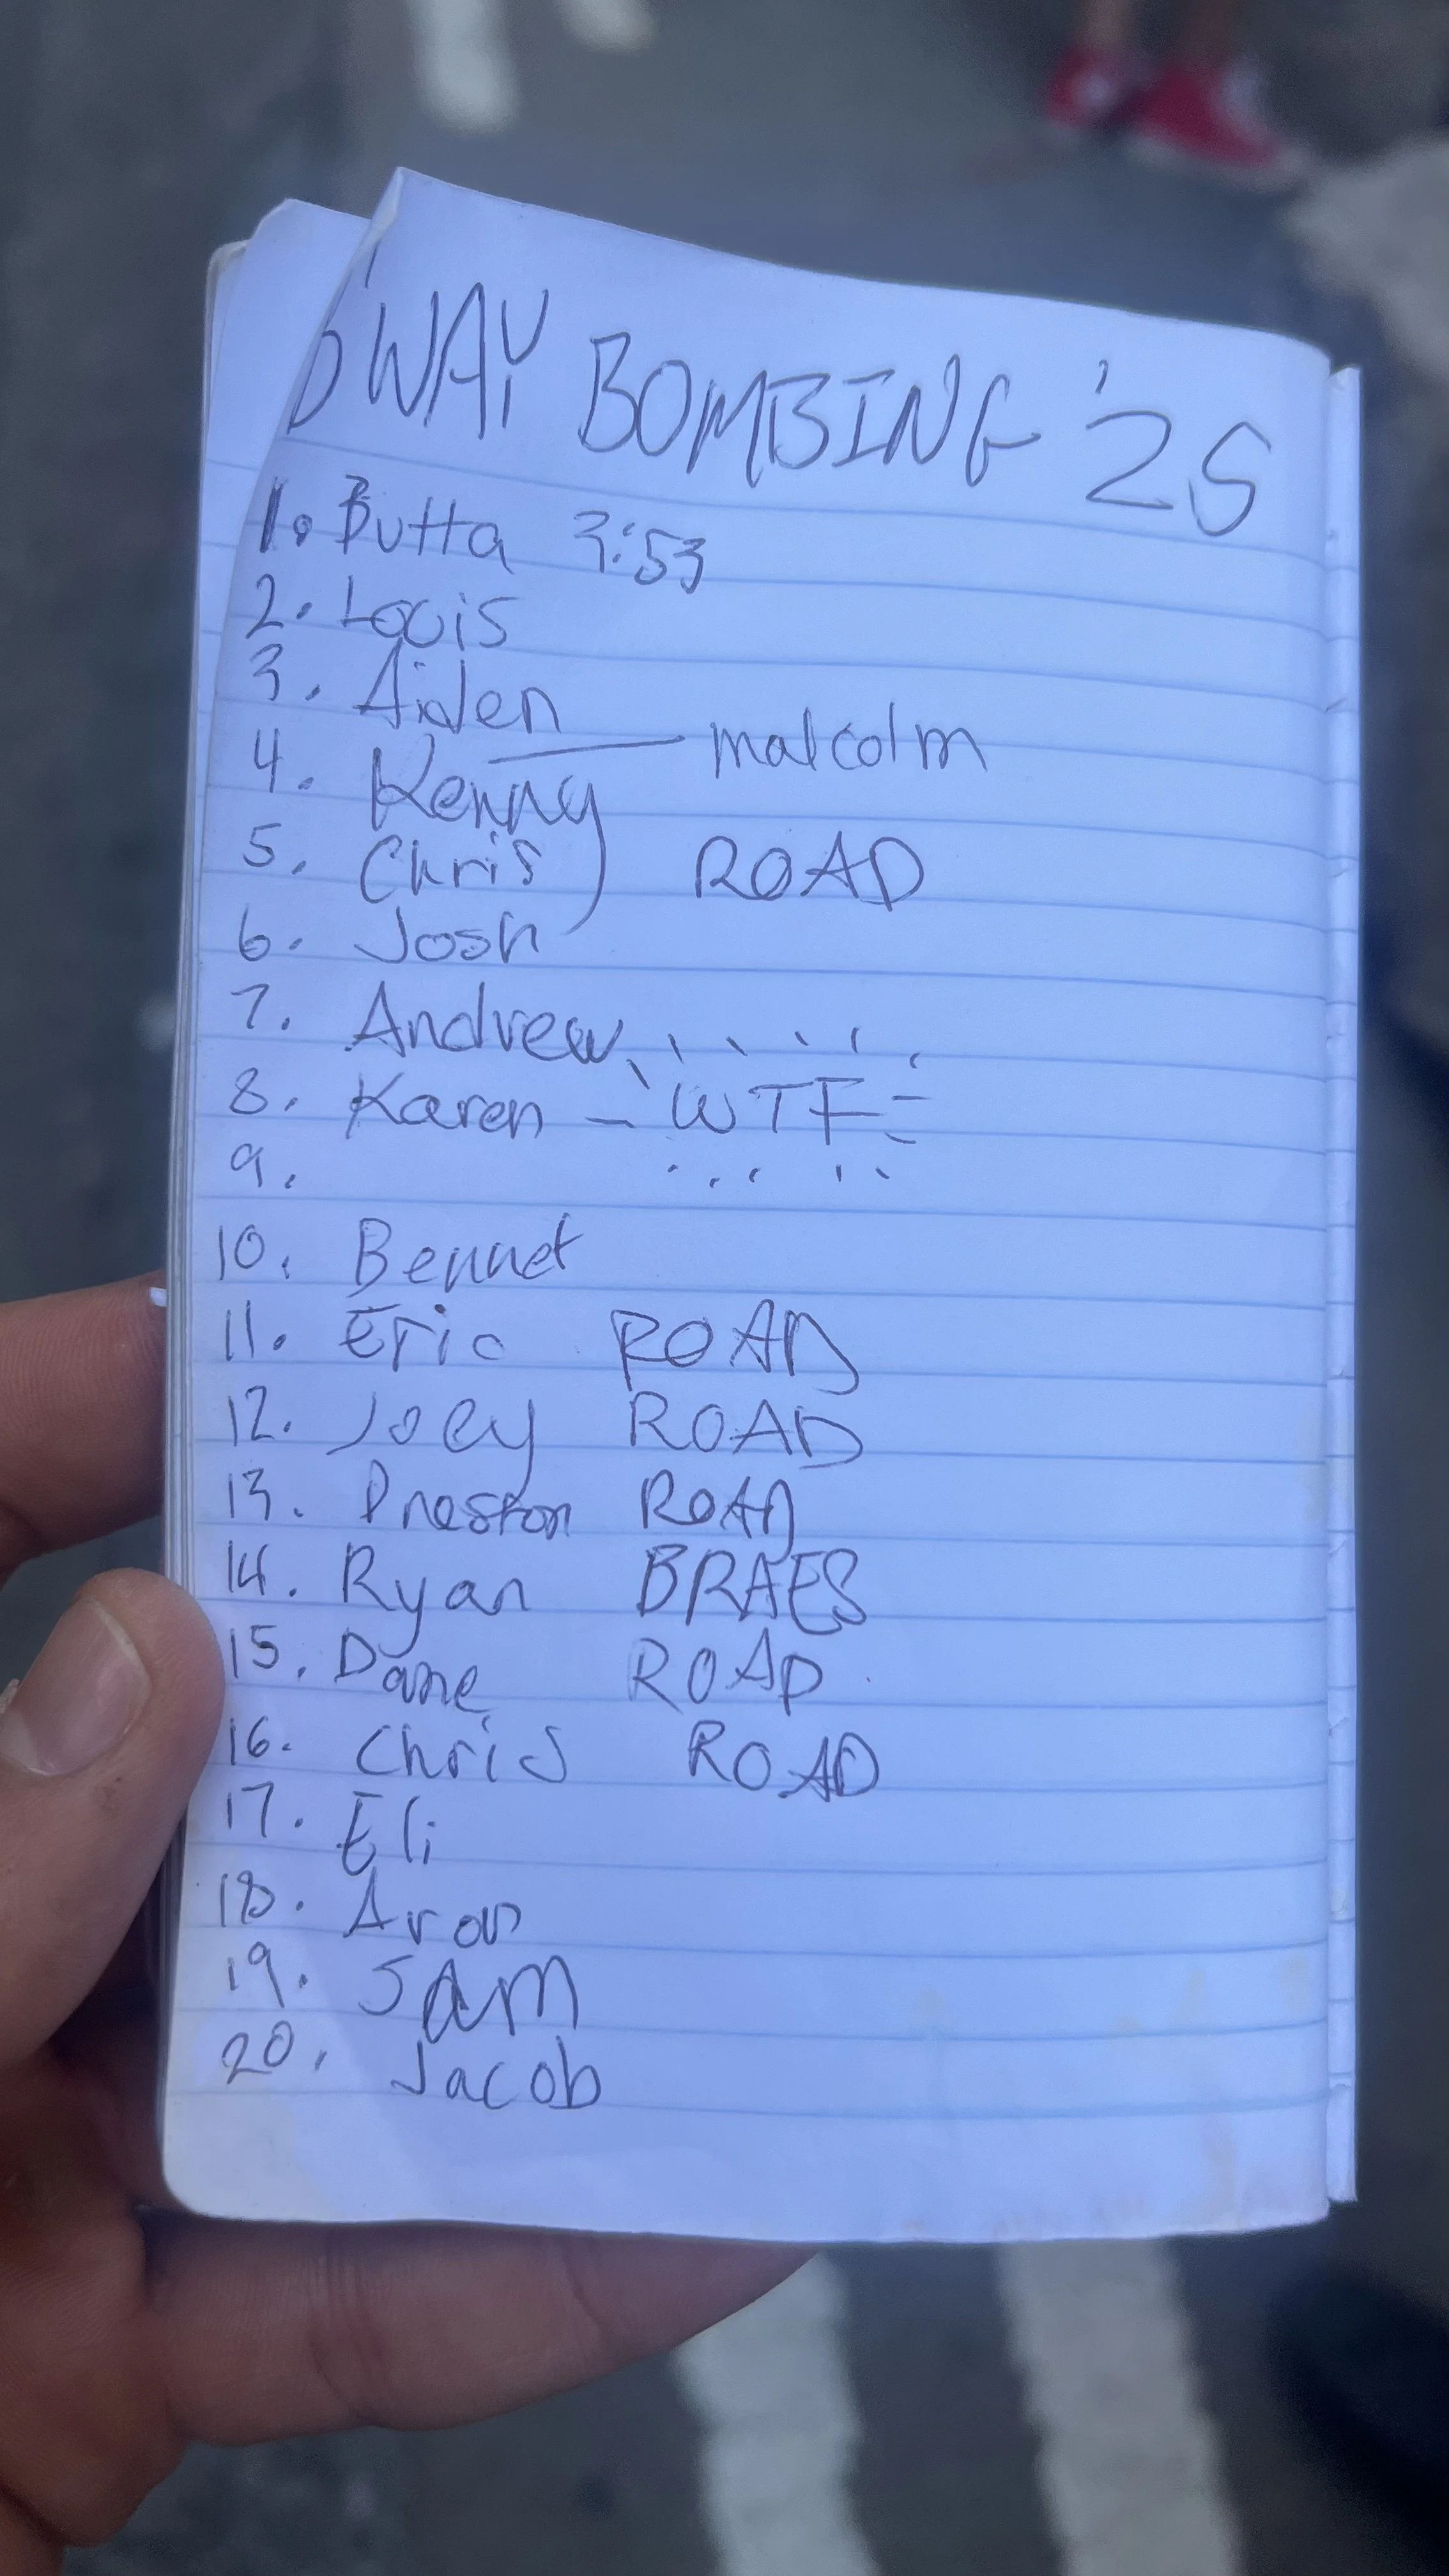 DWAY BOMBING '25
1. Butta 3:53
2. Louis
3. Aiden
4. Kenny — malcolm
5. Chris ROAD
6. Josh
7. Andrew
8. Karen - WTF
9.
10. Bennet
11. Eric ROAD
12. Joey ROAD
13. Preston ROAD
14. Ryan BRAES
15. Dane ROAD
16. Chris ROAD
17. Eli
18. Aron
19. SAM
20. Jacob